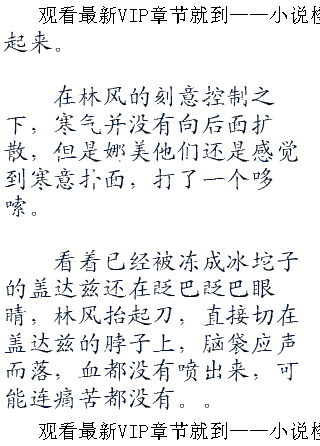 观看最新VIP章节就到——小说
起来。
在林风的刻意控制之
下，寒气并没有向后面扩
散，但是娜美他们还是感觉
到寒意扑面，打了一个哆
嗦。
看着已经被冻成冰坨子
的盖达兹还在眨巴眨巴眼
睛，林风抬起刀，直接切在
盖达兹的脖子上，脑袋应声
而落，血都没有喷出来，可
能连痛苦都没有。。
观看最新VIP章节就到——小说